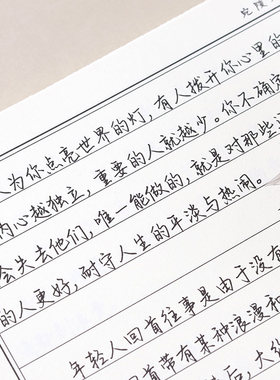 人为你点亮世界的灯,有人拨开你心里的
内心越独立,重要的人就越少。你不确定
会失去他们,唯一能做的,就是对那些
的人更好,耐守人生的平淡与热闹。
年轻人回首往事是由于没有
回首带有某种浪漫和